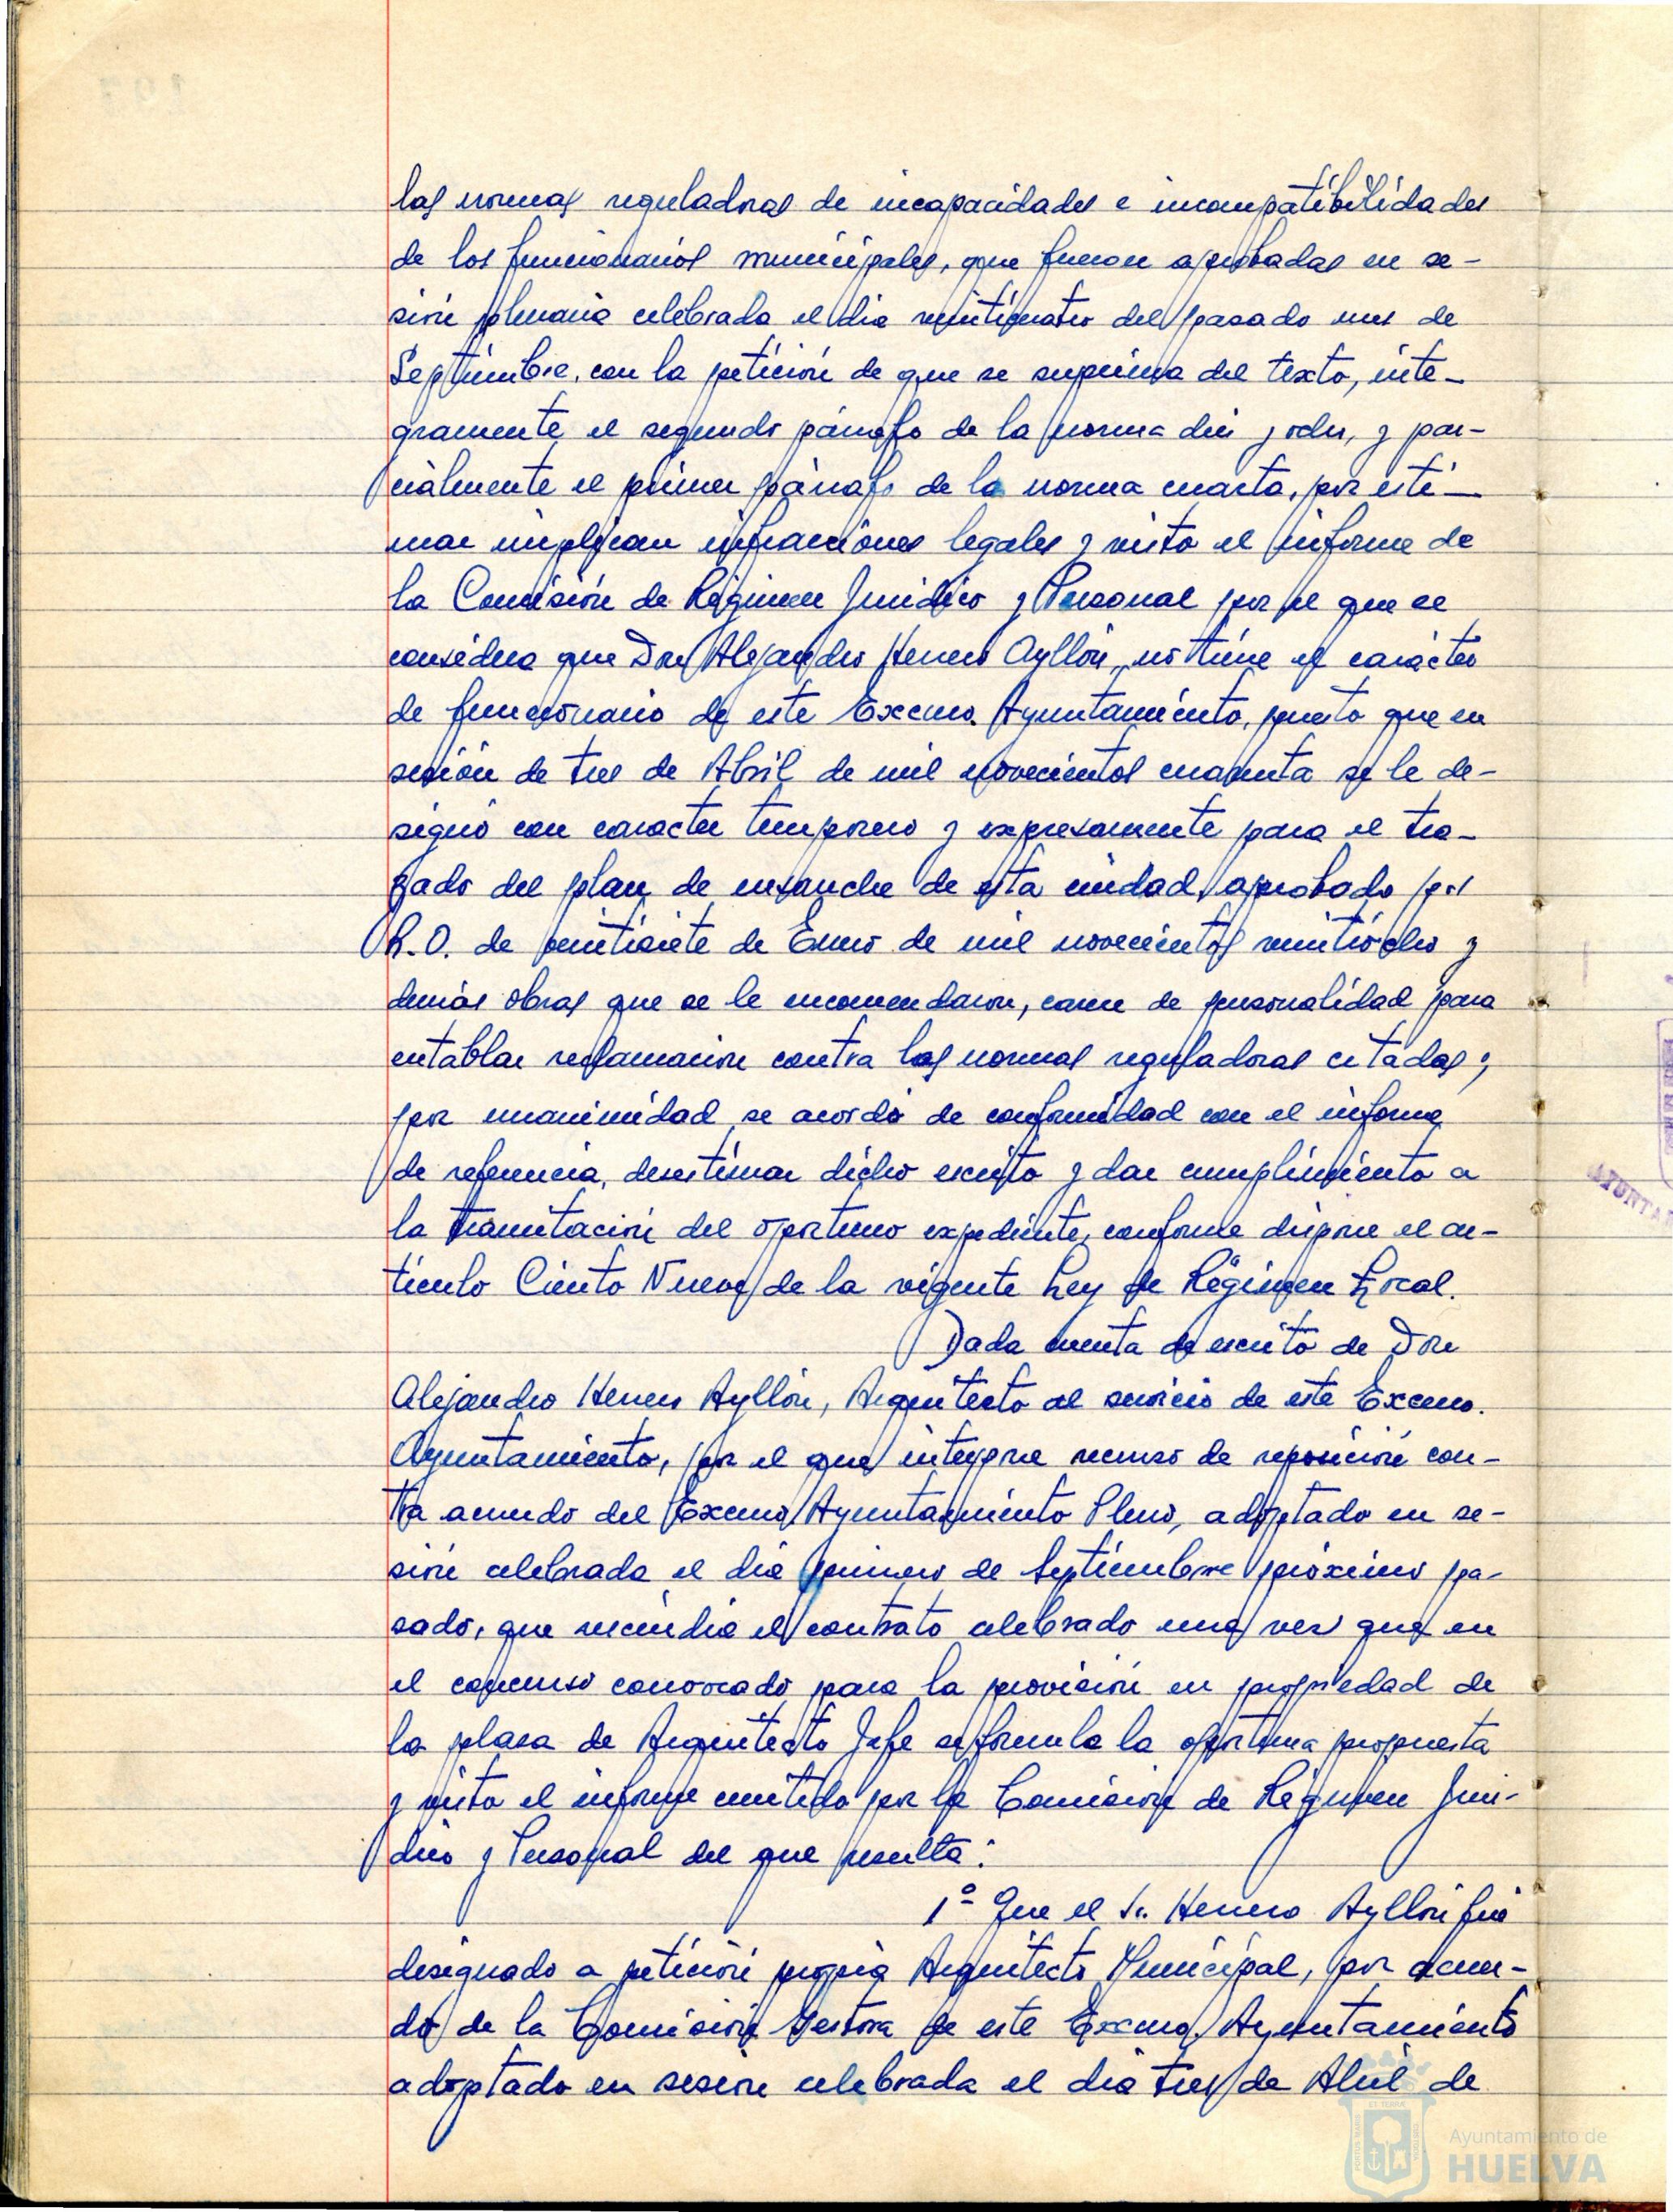 las normas reguladoras de incapacidades e incompatibilidades
de los funcionarios municipales, que fueron aprobadas en se-
sión plenaria celebrada el dia veinticuatro del pasado mes de
Septiembre, con la petición de que se suprima del texto, inte-
gramente el segundo párrafo de la norma diez y ocho, y par-
cialmente el primer párrafo de la norma cuarta, por esti-
mar implican infracciones legales y visto el informe de
la Comisión de Régimen Juridico y Personal por el que se
considera que Don Alejandro Herrero Ayllón, no tiene el carácter
de funcionario de este Excmo. Ayuntamiento, puesto que en
sesión de tres de Abril de mil novecientos cuarenta se le de-
signó con caracter temporero y expresamente para el tra-
zado del plan de ensanche de esta ciudad, aprobado por
R.O. de veintisiete de Enero de mil novecientos veintiocho y
demás obras que se le encomendaron, carece de personalidad para
entablar reclamación contra las normas reguladoras citadas;
por unanimidad se acordó de conformidad con el informe
de referencia, desestimar dicho escrito y dar cumplimiento a
la tramitación del oportuno expediente, conforme dispone el ar-
ticulo Ciento Nueve de la vigente Ley de Régimen Local.
Dada cuenta de escrito de Don
Alejandro Herrero Ayllón, Arquitecto al servicio de este Excmo.
Ayuntamiento, por el que interpone recurso de reposición con-
tra acuerdo del Excmo Ayuntamiento Pleno, adoptado en se-
sión celebrada el dia primero de Septiembre próximo pa-
sado, que rescindia el contrato celebrado una vez que en
el concurso convocado para la provisión en propiedad de
la plaza de Arquitecto Jefe se formula la oportuna propuesta
y visto el informe emitido por la Comisión de Régimen Juri-
dico y Personal del que resulta:
1º Que el Sr. Herrero Ayllón fué
designado a petición propia Arquitecto Municipal, por acuer-
do de la Comisión Gestora de este Excmo. Ayuntamiento
adoptado en sesión celebrada el dia tres de Abril de
Ayuntamiento de
HUELVA